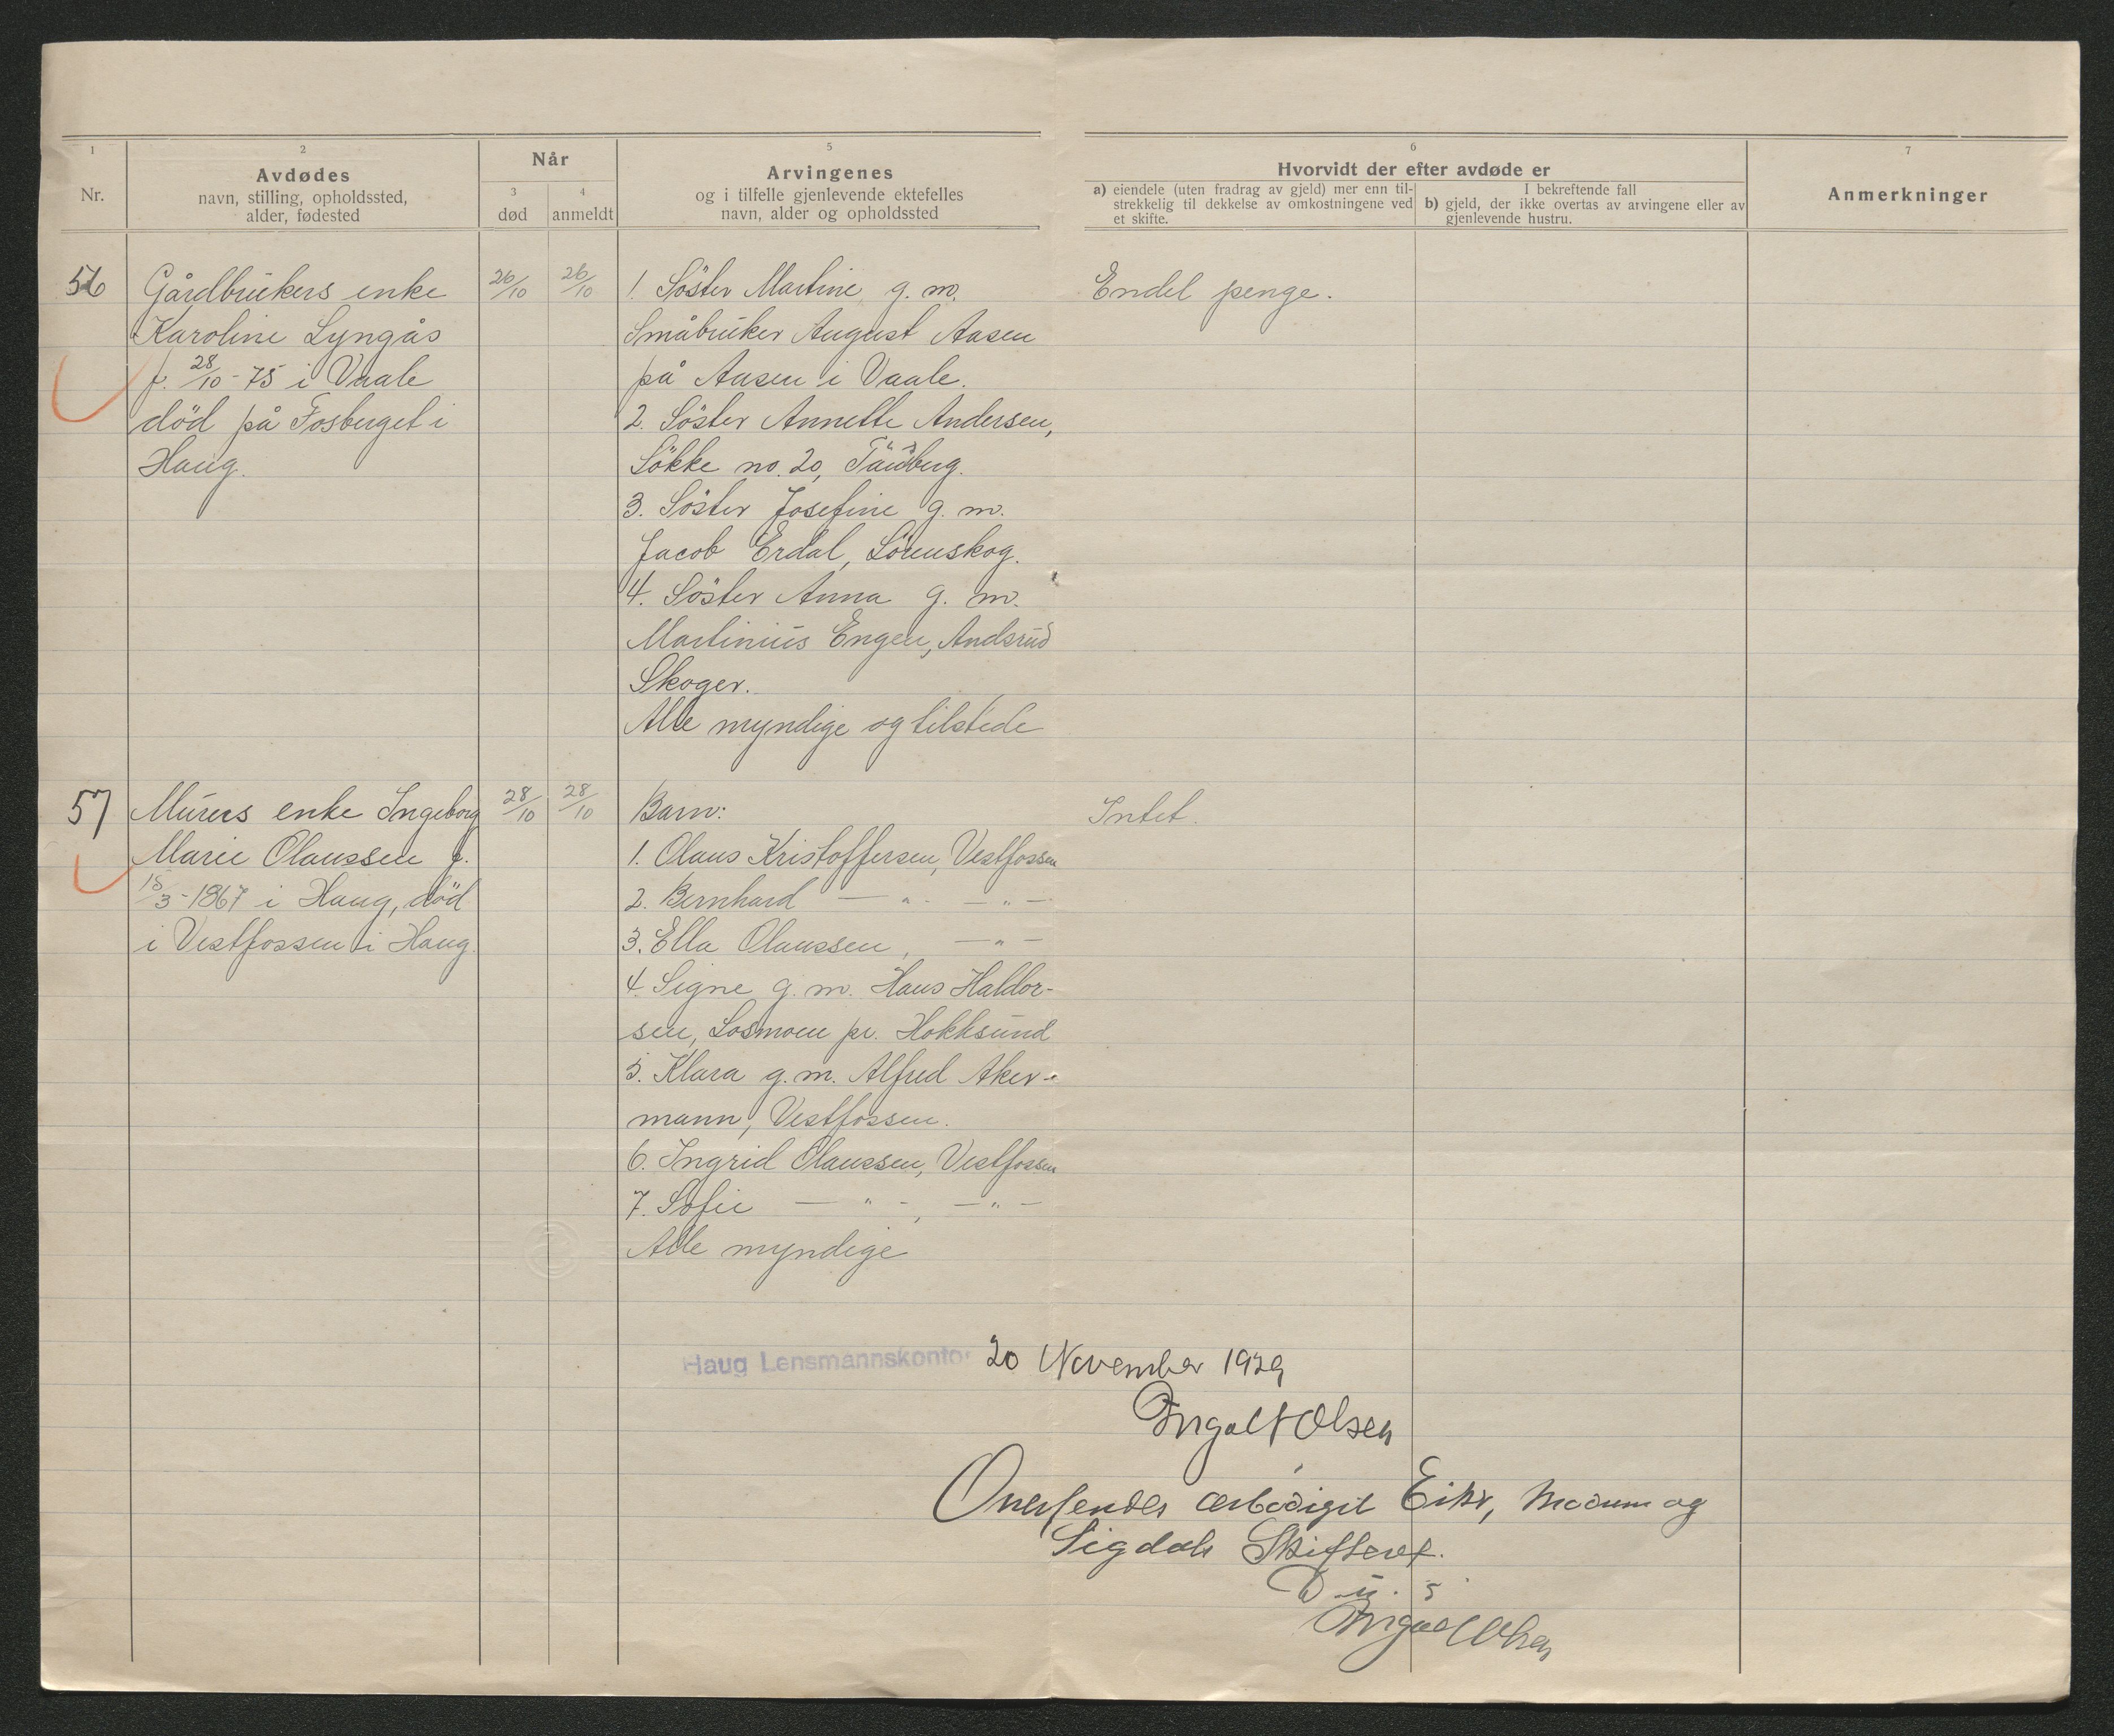 1
Nr.
2
Avdødes
navn, stilling, opholdssted,
alder, fødested
Når
3
død
4
anmeldt
5
Arvingenes
og i tilfelle gjenlevende ektefelles
navn, alder og opholdssted
6
Hvorvidt der efter avdøde er
a) eiendele (uten fradrag av gjeld) mer enn til-
strekkelig til dekkelse av omkostningene ved
et skifte.
I bekreftende fall
b) gjeld, der ikke overtas av arvingene eller av
gjenlevende hustru.
7
Anmerkninger
56
Gårdbrukers enke
Karoline Lyngås
f. 28/10-75 i Vaale
död på Fosberget i
Haug.
26/10
26/10
1. Söster Martine g. m.
Småbruker August Aasen
på Aasen i Vaale.
2. Söster Annette Andersen,
Lökke no. 20, Tönsberg.
3. Söster Josefine g. m.
Jacob Erdal, Lörenskog.
4. Söster Anna g. m.
Martinius Engen, Andsrud
Skoger.
Alle myndige og tilstede
Endel penge.
57
Murers enke Ingeborg
Marie Olaussen f.
15/3-1867 i Haug, död
i Vestfossen i Haug.
28/10
28/10
Barn:
1. Olaus Kristoffersen, Vestfossen
2. Bernhard — " - — " —
3. Ella Olaussen, — " —
4. Signe g. m. Hans Haldor-
sen, Losmoen pr. Hokksund
5. Klara g. m. Alfred Aker-
mann, Vestfossen.
6. Ingrid Olaussen, Vestfossen
7. Sofie — " -, — " —
Alle myndige
Intet.
Haug Lensmannskontor 20 November 1929
Ingolf Olsen
Oversendes ærbödigst Eiker, Modum og
Sigdals Skifterett.
D. u. s.
Ingolf Olsen